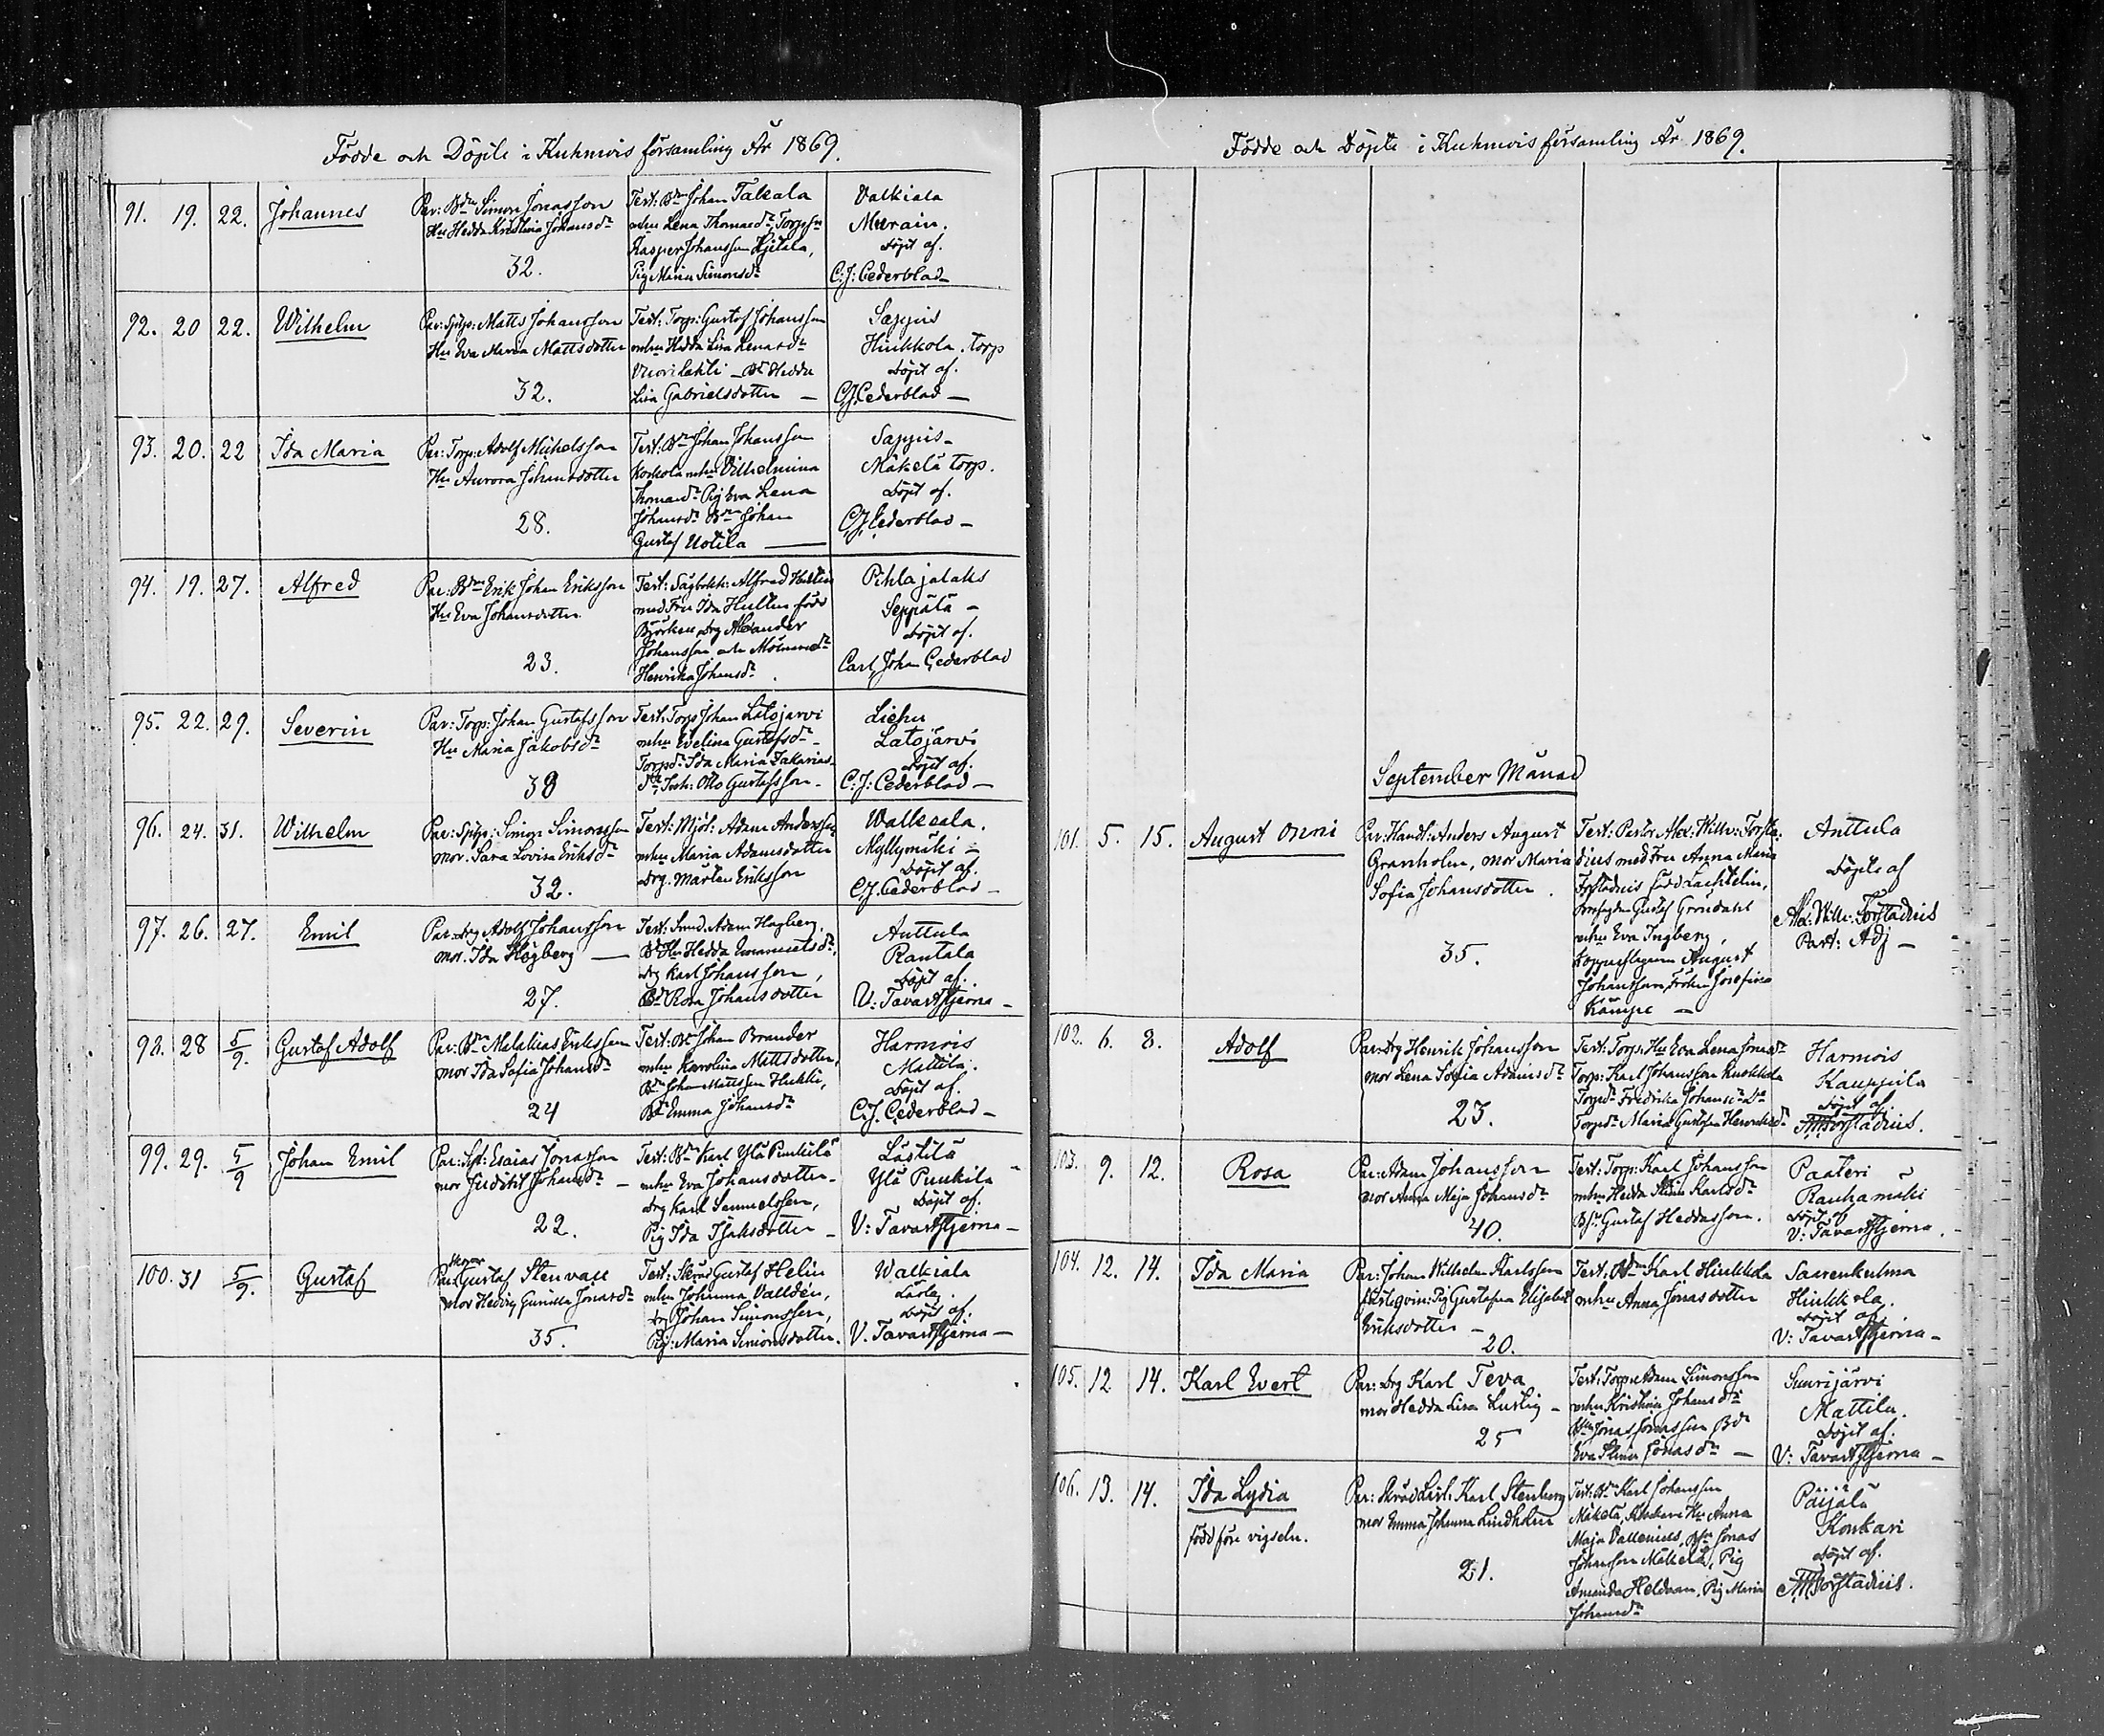 Födde och Döpte i Kuhmois församling År 1869.
91. 19. 22. Johannes
Par: Bdn Simon Jonasson
Hu Hedda Kristina Johansdr
32.
Test: Bdn Johan Takala
mhu Lena Thomasdr, Torpsn
Kasper Johansson Hjetala,
Pig Maria Simonsdr
Valkiala
Murain.
Döpt af.
C.J: Cederblad
92. 20 22. Wilhelm
Par: Sptgs: Matts Johansson
Hu Eva Maria Mattsdotter
32.
Test: Torp: Gustaf Johansson
mhu Hedda Lisa Lenasdr
Vuorilahti – Bdr Hedda
Lisa Gabrielsdotter –
Sappus
Hinkkola torp
Döpt af.
C.J. Cederblad –
93. 20. 22 Ida Maria
Par: Torp: Adolf Michelsson
Hu Aurora Johansdotter
28.
Test: Bdn Johan Johansson
Koskola mhu Vilhelmina
Thomasdr Pig Eva Lena
Johansdr Bdn Johan
Gustaf Uotila –
Sappus –
Mäkelä torp.
Döpt af.
C.J. Cederblad –
94. 19. 27. Alfred
Par: Bdn Erik Johan Eriksson
Hu Eva Johansdotter
23.
Test: Sågbokh: Alfred Hultin
med Fru Ida Hultin född
Björken Drg Alexander
Johansson och
Henrika Johansdr
Pihlajalaks
Seppälä –
Döpt af.
Carl Johan Cederblad
95. 22. 29. Severin
Par: Torp: Johan Gustafsson
Hu Maria Jakobsdr
38
Test: Torp Johan Latojärvi
mhu Evelina Gustafsdr –
Torpdr Ida Maria Sakarias-
dr, Inh: Otto Gustafsson –
Liehu
Latojärvi
Döpt af.
C: J: Cederblad –
96. 24. 31. Wilhelm
Par: Sptgs: Simon Simonsson
mor. Sara Lovisa Eriksdr
32.
Test: Mjöl: Adam Andersson
mhu Maria Adamsdotter
Drg. Mårten Eriksson
Walkeala.
Myllymäki –
Döpt af.
C.J. Cederblad –
97. 26. 27. Emil
Par: Drg Adolf Johansson
mor. Ida Högberg –
27.
Test: Smed Adam Hagberg,
Bd Hu Hedda Emanuelsdr,
Drg Karl Johansson,
Bdr Rosa Johansdotter
Anttula
Rantala
Döpt af.
V: Tavaststjerna –
98. 28 5/9. Gustaf Adolf
Par: Bdn Malakias Eriksson
mor Ida Sofia Johansdr
24
Test: Bdn Johan Brander
mhu Karolina Mattsdotter,
Bdn Johan Mattsson Hukki,
Bdr Emma Johansdr
Harmois
Mattila.
Döpt af.
C.J. Cederblad –
99. 29. 5/9 Johan Emil
Par: Syt: Esaias Jonasson
mor Judith Johansdr –
22.
Test: Bdn Karl Ylä Punkila
mhu Eva Johansdotter –
Drg Karl Samuelsson,
Pig Ida Isaksdotter –
Lästilä
Ylä Punkila
Döpt af.
V: Tavaststjerna –
100. 31 5/9. Gustaf
Par: Gustaf Stenvall
mor Hedvig Gunilla Jonasdr
35.
Test: Skräd Gustaf Helin
mhu Johanna Vallden,
Drg Johan Simonsson,
Pig: Maria Simonsdotter.
Walkiala
Döpt af.
V. Tavaststjerna –
Födde och Döpte i Kuhmois församling År 1869.
September Månad
101. 5. 15. August Onni
Par: Handl: Anders August
Granholm, mor Maria
Sofia Johansdotter.
35.
Test: Pastor Alex: Wilh: Forsta-
dius med Fru Anna Maria
Forstadius född Lachtelin,
Gustaf Gröndahl
mhu Eva Ingberg,
Kopparslagaren August
Johansson, Fröken Josefina
Kämpe –
Anttula
Döpte af
Alex: Wilh: Forstadius
Past: Adj –
102. 6. 8. Adolf
Par: Drg Henrik Johansson
mor Lena Sofia Adamsdr
23.
Test: Torp: Hu Eva Lena Jonasdr
Torp: Karl Johansson Ruokkola
Torpdr Fredrika Johansdr
Torpdr Maria Gustafva Henriksdr
Harmois
Kauppila
Döpt af
AWForstadius.
103. 9. 12. Rosa
Par: Adam Johansson
mor Anna Maja Johansdr
40.
Test: Torp: Karl Johansson
mhu Hedda Stina Karlsdr
Bsn Gustaf Heddasson.
Paateri
Rauhamäki
Döpt af
V: Tavaststjerna.
104. 12. 14. Ida Maria
Par: Johan Wilhelm Karlsson
Pig Gustafva Elisabet
Eriksdotter –
20.
Test: Bdn Karl Hinkkola
mhu Anna Jonasdotter
Saarenkulma
Hinkkola.
Döpt af.
V: Tavaststjerna –
105. 12 14. Karl Evert
Par: Drg Karl Teva
mor Hedda Lisa Lustig –
25
Test: Torp: Adam Simonsson
mhu Kristina Johansdr
Bdn Jonas Jonasson Bdr
Eva Stina Jonasdr –
Suurijärvi
Mattila.
Döpt af.
V: Tavaststjerna –
106. 13. 14. Ida Lydia
född före vigseln.
Par: Skräd Lärl: Karl Stenberg
mor Emma Johanna Lindholm
21.
Test: Bdn Karl Johansson
Mäkelä, Hu Anna
Maja Vallenius, Bsn Jonas
Johansson Mäkelä, Pig
Amanda Heldman, Pig Maria
Johansdr
Päijälä
Konkari
Döpt af.
AWForstadius.